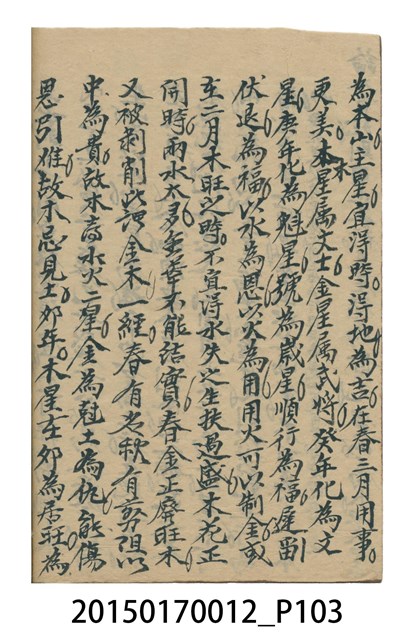 為本山主星宜得時得地為吉在春三月用事
更美木星属文士金星属武將癸年化為文
星庚年化為魁星號為歲星順行為福遲留
伏退為福以水為恩以火為用用火可以制金或
至二月木旺之時不宜得水失之生扶過盛木花正
開時雨水太多無葉不能結實春金正廢旺木
又被剥削此謂金木一經春有名秋有剪阻以
中為貴故木高水火二星金為尅土為仇能傷
恩引难故木忌見土卯年木星在卯為居旺為
20150170012_P103